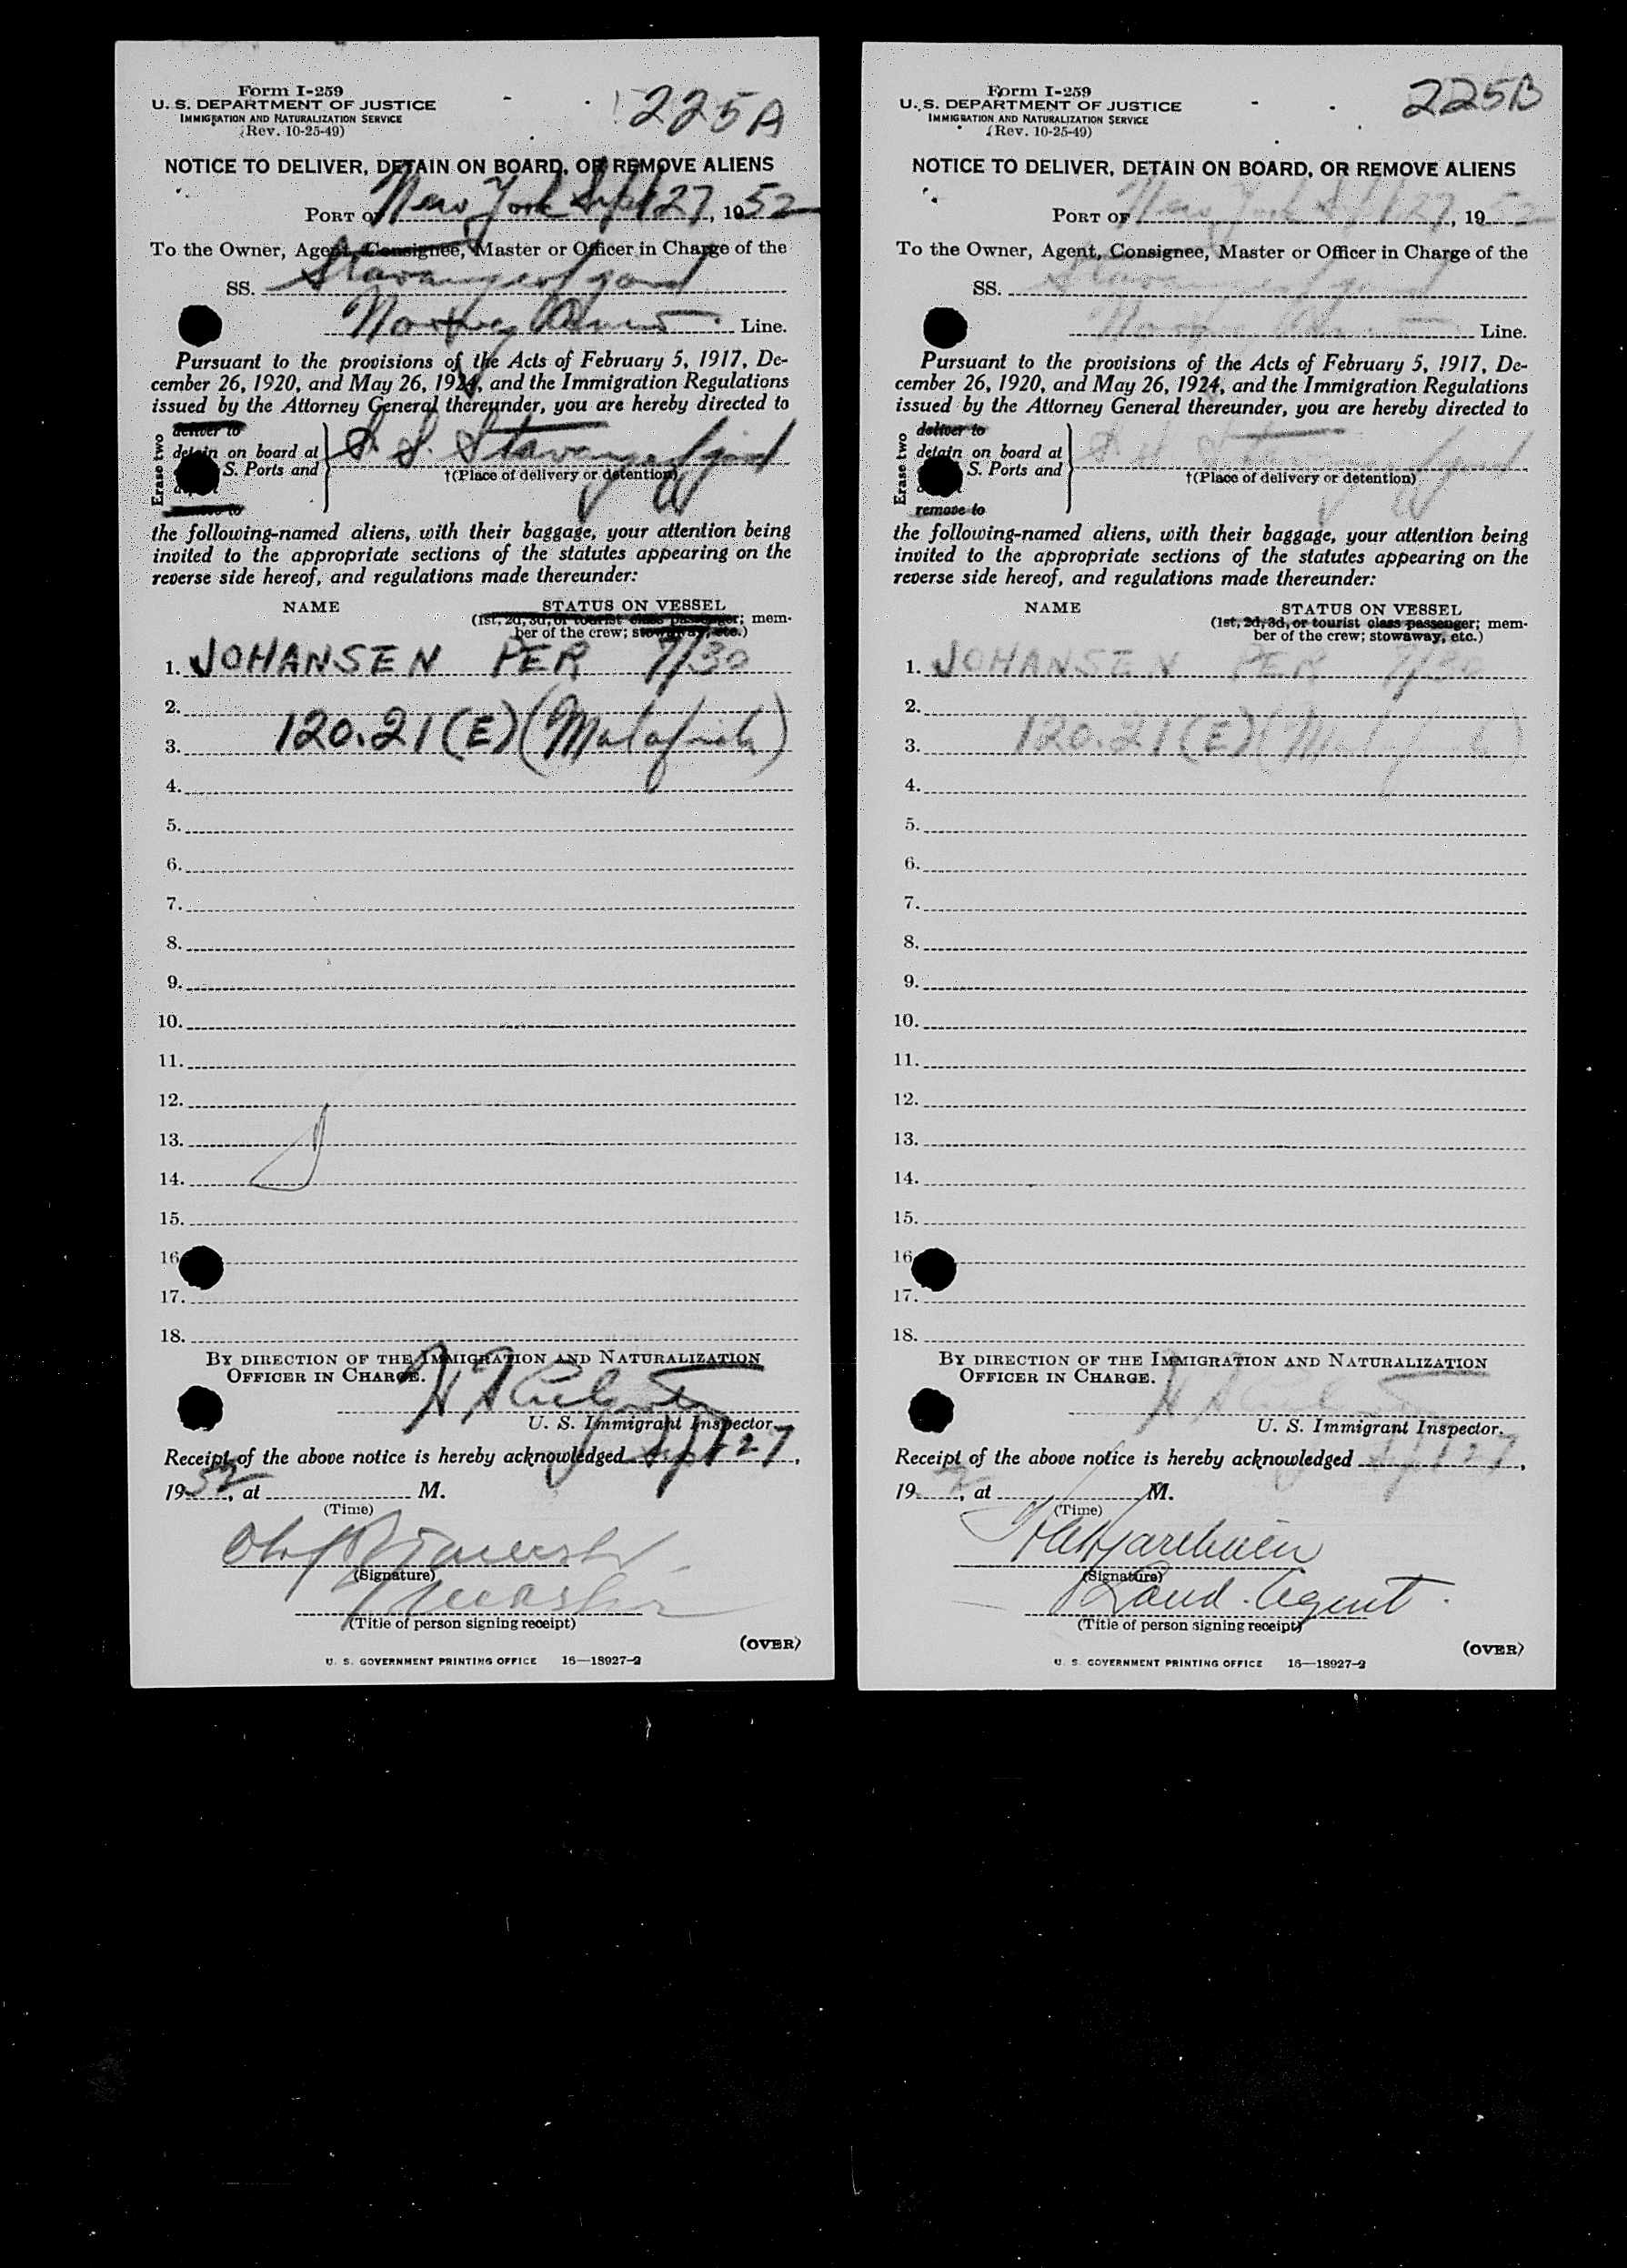 Form I-259
U. S. DEPARTMENT OF JUSTICE
IMMIGRATION AND NATURALIZATION SERVICE
(Rev. 10-25-49)
225A
NOTICE TO DELIVER, DETAIN ON BOARD, OR REMOVE ALIENS
PORT OF New York Sept 27, 1952
To the Owner, Agent, Consignee, Master or Officer in Charge of the
SS. Stavangerfjord
Line.
Pursuant to the provisions of the Acts of February 5, 1917, De-
cember 26, 1920, and May 26, 1924, and the Immigration Regulations
issued by the Attorney General thereunder, you are hereby directed to
Erase two
deliver to
detain on board at
S. Ports and
S. S. Stavangerfjord
†(Place of delivery or detention)
remove to
the following-named aliens, with their baggage, your attention being
invited to the appropriate sections of the statutes appearing on the
reverse side hereof, and regulations made thereunder:
NAME
STATUS ON VESSEL
(1st, 2d, 3d, or tourist class passenger; mem-
ber of the crew; stowaway, etc.)
1. JOHANSEN PER 7/30
2.
3. 120.21(E) (Malafide)
4.
5.
6.
7.
8.
9.
10.
11.
12.
13.
14.
15.
16
17.
18.
BY DIRECTION OF THE IMMIGRATION AND NATURALIZATION
OFFICER IN CHARGE.
U. S. Immigrant Inspector.
Receipt of the above notice is hereby acknowledged Sept 27,
1952, at M.
(Time)
(Signature)
(Title of person signing receipt)
(OVER)
U. S. GOVERNMENT PRINTING OFFICE 16—18927-2
Form I-259
U. S. DEPARTMENT OF JUSTICE
IMMIGRATION AND NATURALIZATION SERVICE
(Rev. 10-25-49)
225B
NOTICE TO DELIVER, DETAIN ON BOARD, OR REMOVE ALIENS
PORT OF New York Sept 27, 1952
To the Owner, Agent, Consignee, Master or Officer in Charge of the
SS. Stavangerfjord
Line.
Pursuant to the provisions of the Acts of February 5, 1917, De-
cember 26, 1920, and May 26, 1924, and the Immigration Regulations
issued by the Attorney General thereunder, you are hereby directed to
Erase two
deliver to
detain on board at
S. Ports and
S. S. Stavangerfjord
†(Place of delivery or detention)
remove to
the following-named aliens, with their baggage, your attention being
invited to the appropriate sections of the statutes appearing on the
reverse side hereof, and regulations made thereunder:
NAME
STATUS ON VESSEL
(1st, 2d, 3d, or tourist class passenger; mem-
ber of the crew; stowaway, etc.)
1. JOHANSEN PER 7/30
2.
3. 120.21(E)
4.
5.
6.
7.
8.
9.
10.
11.
12.
13.
14.
15.
16
17.
18.
BY DIRECTION OF THE IMMIGRATION AND NATURALIZATION
OFFICER IN CHARGE.
U. S. Immigrant Inspector.
Receipt of the above notice is hereby acknowledged Sept 27,
19 , at M.
(Time)
(Signature)
Agent.
(Title of person signing receipt)
(OVER)
U. S. GOVERNMENT PRINTING OFFICE 16—18927-2